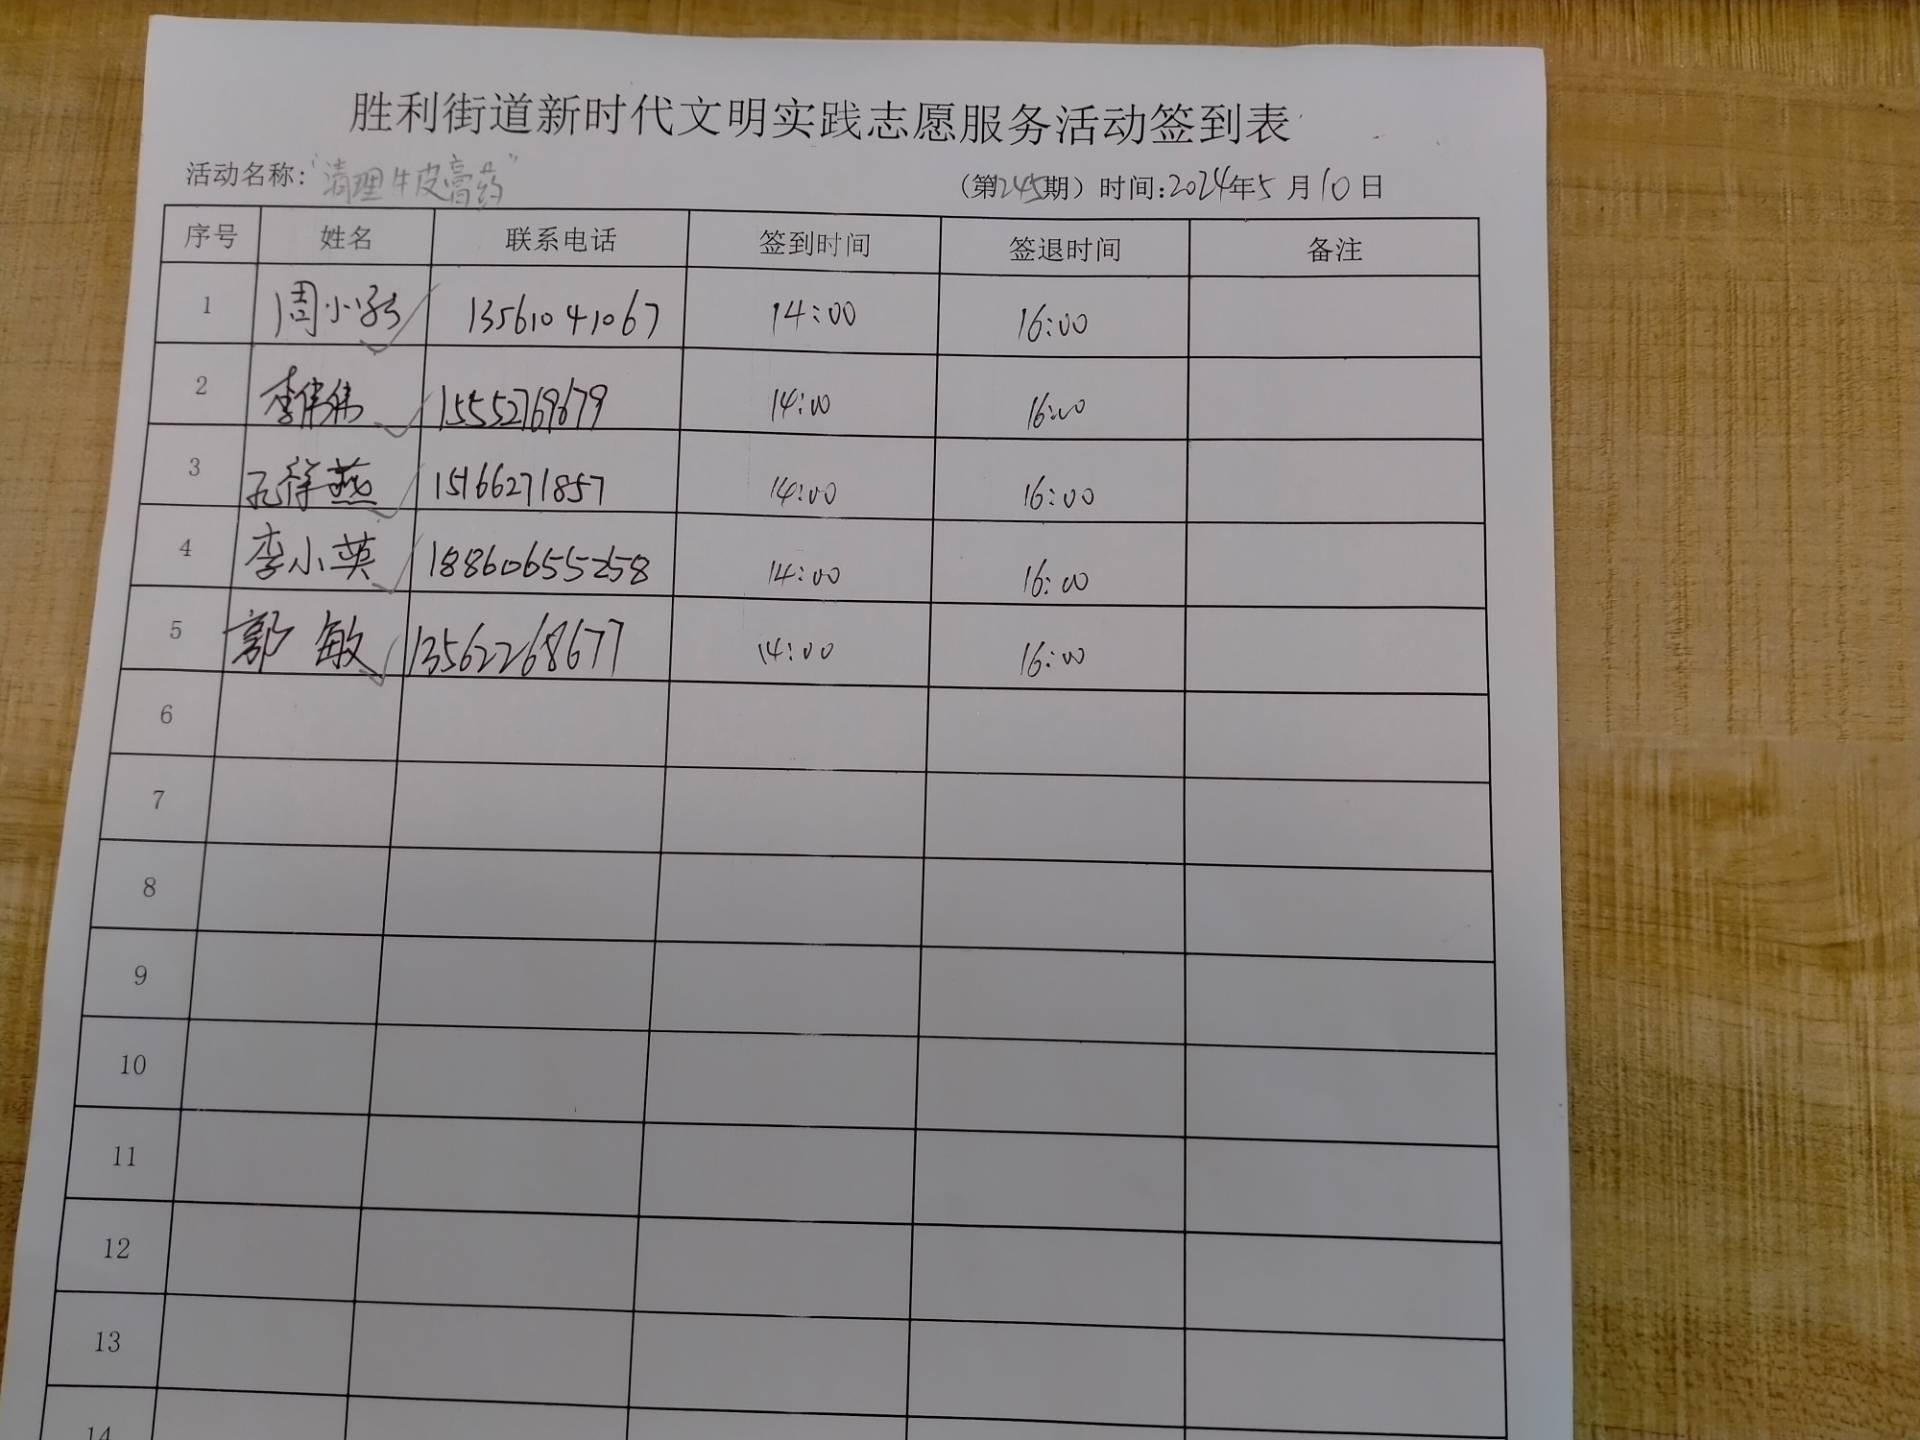 胜利街道新时代文明实践志愿服务活动签到表
活动名称：“清理牛皮膏药” （第245期）时间：2024年5月10日
序号 姓名 联系电话 签到时间 签退时间 备注
1 周小 13561041067 14:00 16:00
2 李伟伟 15552769679 14:00 16:00
3 孔徐燕 15166271857 14:00 16:00
4 李小英 18860655258 14:00 16:00
5 郭敏 13562268677 14:00 16:00
6
7
8
9
10
11
12
13
14